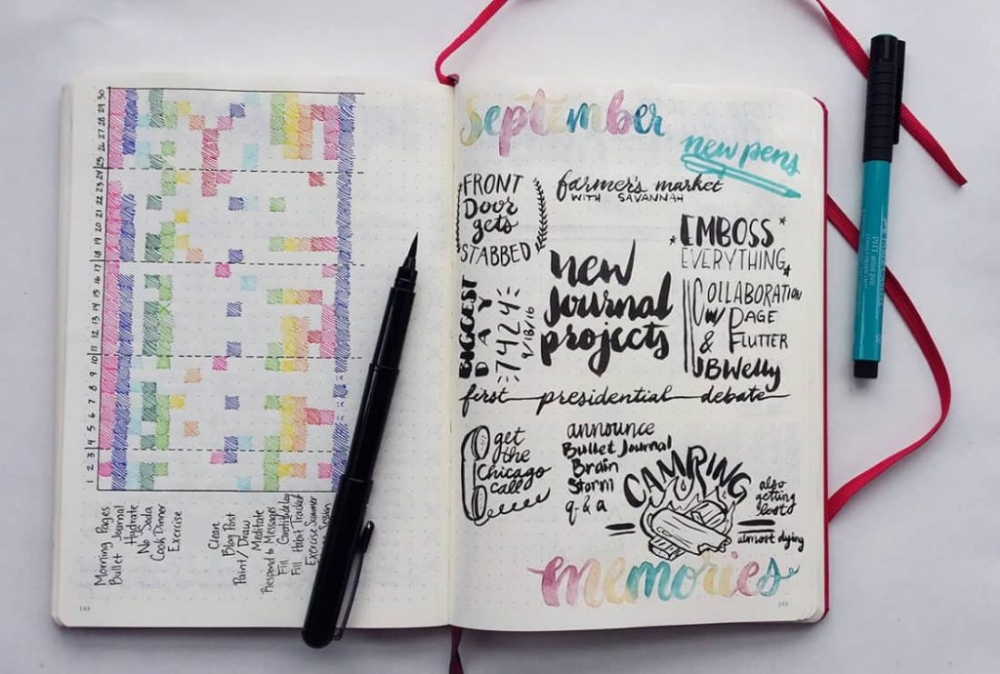 30
29
28
27
26
25
24
23
22
21
20
19
18
17
16
15
14
13
12
11
10
9
8
7
6
5
4
3
2
1
Morning Pages
Bullet Journal
Hydrate
No Soda
Cook Dinner
Exercise
Clean
Blog Post
Paint/Draw
Meditate
Respond to Messages
Fill
Fill Habit Tracker
Exercise Summer
188
September
new pens
FRONT
Door
gets
STABBED
farmer's market
WITH SAVANNAH
EMBOSS
EVERYTHING
new
Journal
projects
BIGGEST
DAY
7424
9/18/16
COLLABORATION
W/ PAGE
& FLUTTER
BWelly
first presidential debate
get
the
Chicago
call
announce
Bullet Journal
Brain
Storm
q & a
CAMPING
also
getting
lost
almost dying
memories